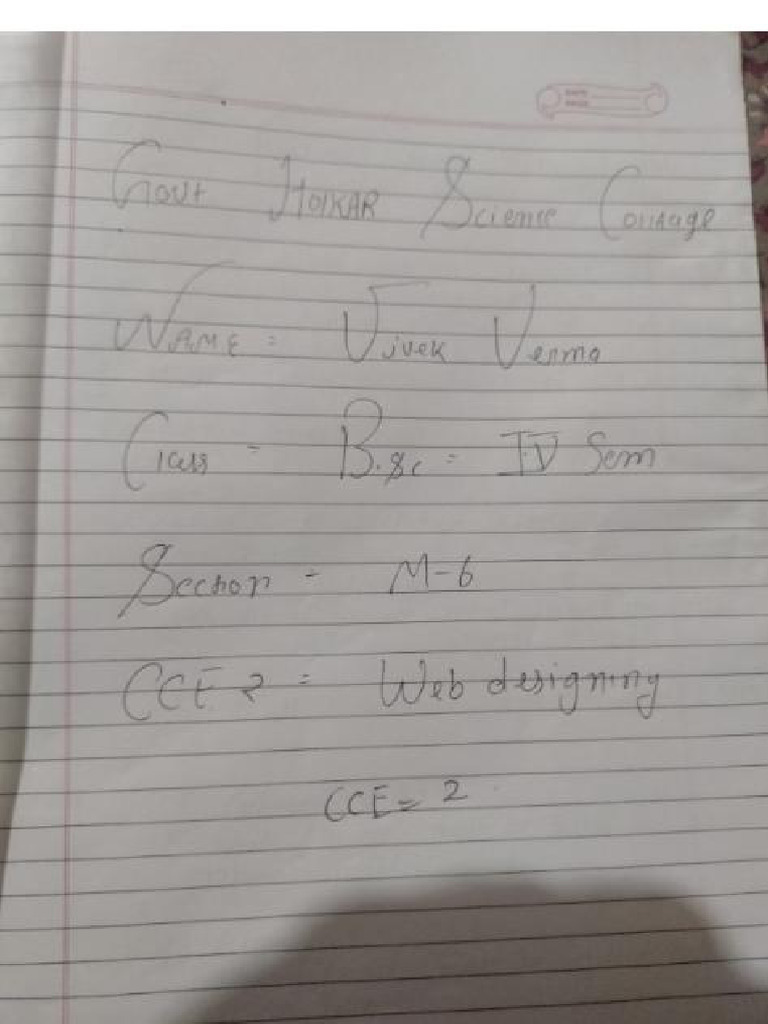 Govt Holkar Science Collage
Name = Vivek Verma
Class - B.sc = IV Sem
Section - M-6
CCE 2 = Web designing
CCE = 2